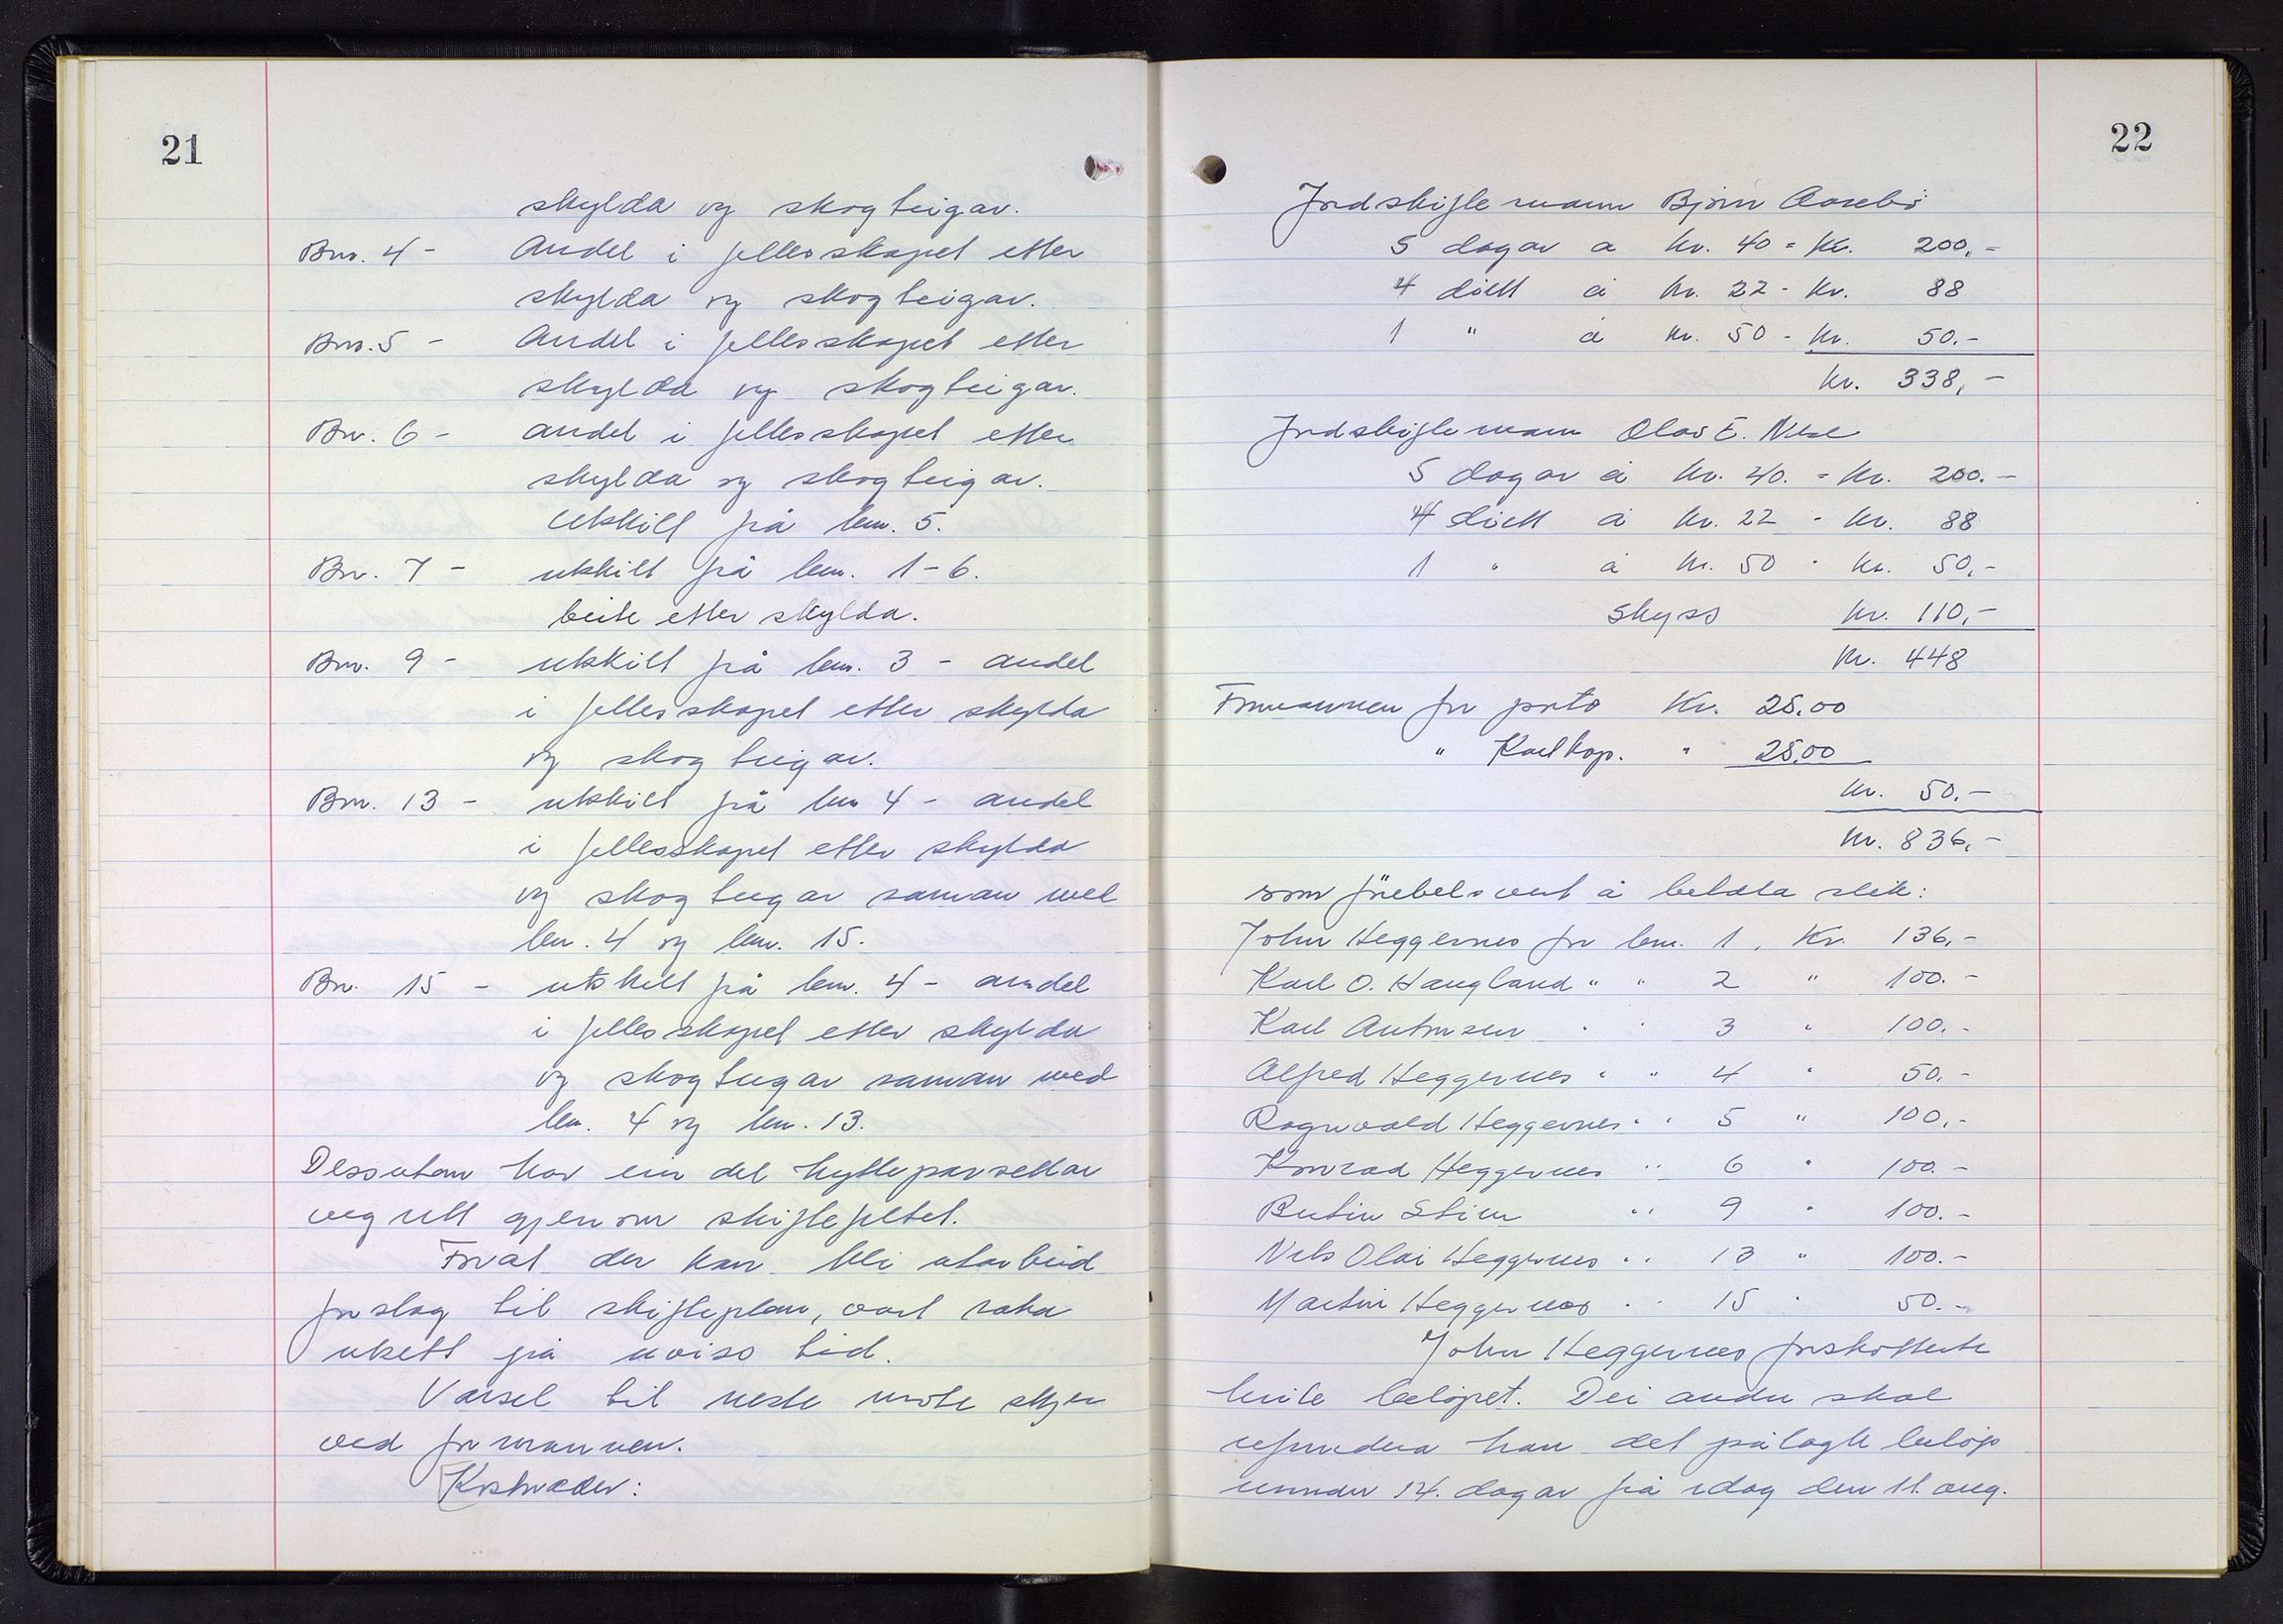 21
skylda og skogteigar.
Bnr. 4 - Andel i fellesskapet etter
skylda og skogteigar.
Bnr. 5 - Andel i fellesskapet etter
skylda og skogteigar.
Bnr. 6 - andel i fellesskapet etter
skylda og skogteigar.
Utskilt frå bnr. 5.
Bnr. 7 - utskilt frå bnr. 1-6.
beite etter skylda.
Bnr. 9 - utskilt frå bnr. 3 - andel
i fellesskapet etter skylda
og skogteigar.
Bnr. 13 - utskilt frå bnr 4 - andel
i fellesskapet etter skylda
og skogteigar saman med
bnr. 4 og bnr. 15.
Bnr. 15 - utskilt frå bnr. 4 - andel
i fellesskapet etter skylda
og skogteigar saman med
bnr. 4 og bnr. 13.
Dessutan har ein del hytteparsellar
vegrett gjenom skiftefeltet.
Forat der kan bli utarbeid
forslag til skifteplan, vart saka
utsett på uviss tid.
Varsel til neste møte skjer
ved formannen.
Kostnader:
22
Jordskiftemann Bjørn Aasebø
5 dagar a kr. 40 = kr. 200,-
4 diett á kr. 22 - kr. 88
1 " á kr. 50 - kr. 50.-
kr. 338,-
Jordskiftemann Olav E. Nese
5 dagar á kr. 40. = kr. 200.-
4 diett á kr. 22 - kr. 88
1 " á kr. 50 - kr. 50,-
Skyss kr. 110,-
kr. 448
Formannen for porto Kr. 25,00
" Kartkop. " 25,00
kr. 50,-
kr. 836,-
som førebels vert å betala slik:
John Heggernes for bnr. 1, Kr. 136,-
Karl O. Haugland " " 2 " 100.-
Karl Antonsen " " 3 " 100.-
Alfred Heggernes " " 4 " 50,-
Rognvald Heggernes " " 5 " 100,-
Konrad Heggernes " " 6 " 100.-
Bertin Stien " " 9 " 100.-
Nils Olai Heggernes " " 13 " 100.-
Martin Heggernes " " 15 " 50.-
John Heggernes forskotterte
heile beløpet. Dei andre skal
refundera han det pålagte beløp
innen 14. dagar frå idag den 11. aug.